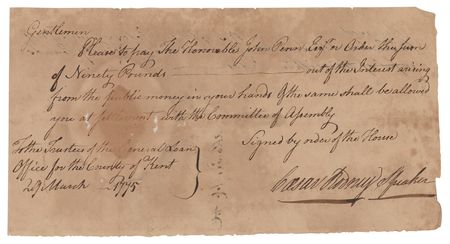 Gentlemen
Please to pay The Honorable John Penn Esqr. or Order the Sum
of Ninety Pounds out of the Interest arising
from the public money in your hands & the same shall be allowed
you at Settlement with the Committee of Assembly
Signed by order of the House
To the Trustees of the General Loan
Office for the County of Kent
29 March 1775
Caesar Rodney Speaker